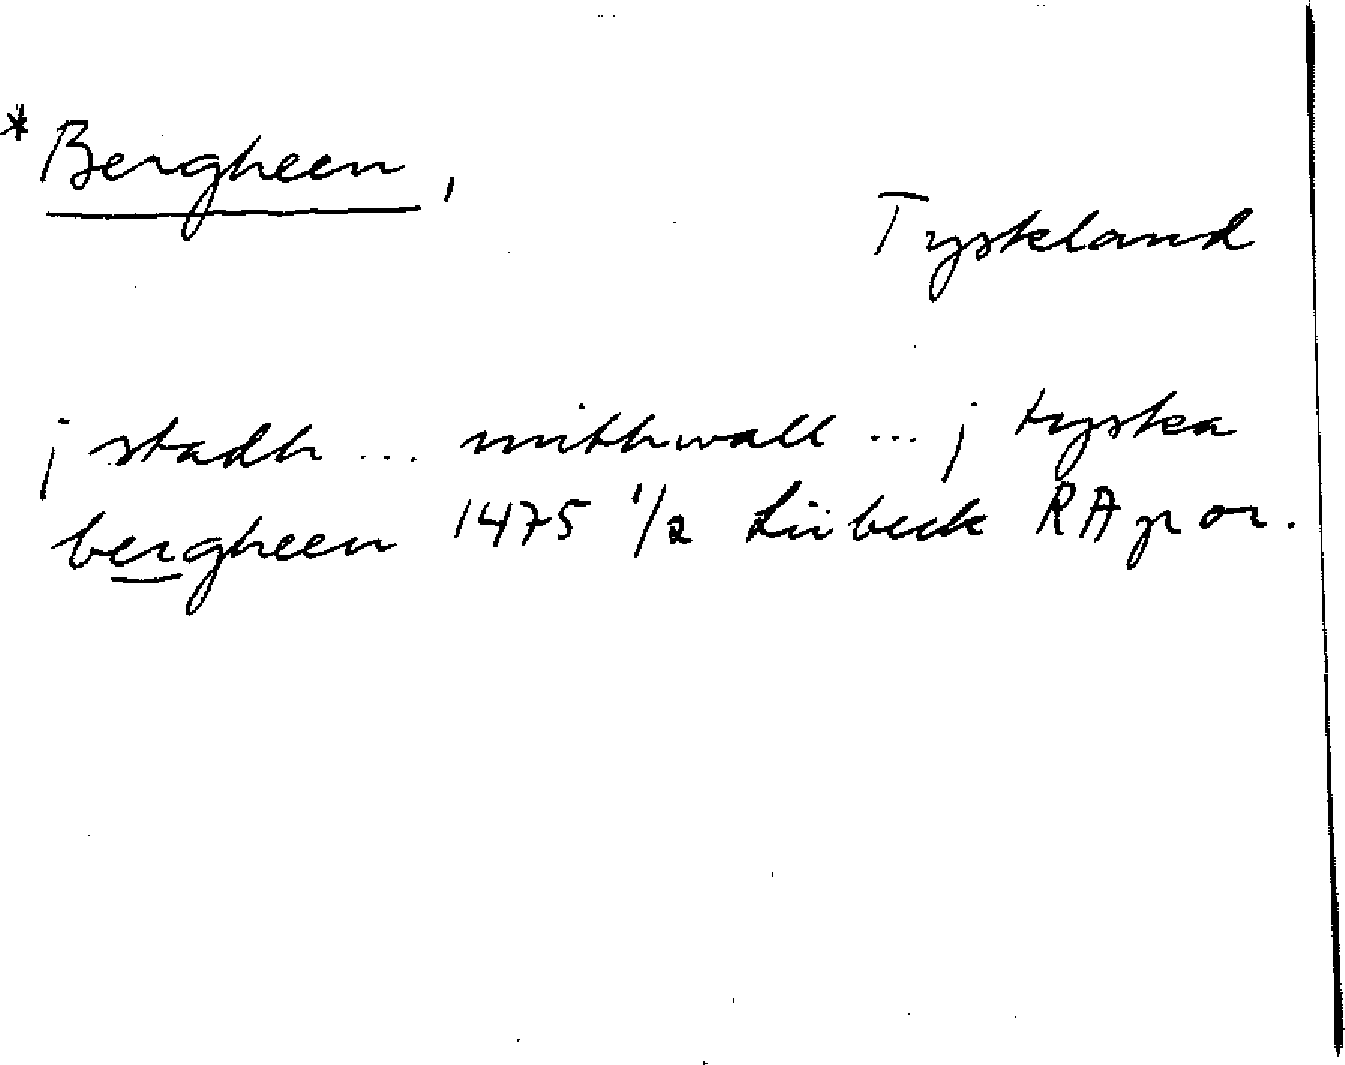 * Bergheen,
Tyskland
j stadh ... mithwall ... j tyska
bergheen 1475 1/2 Lübeck RAp or.